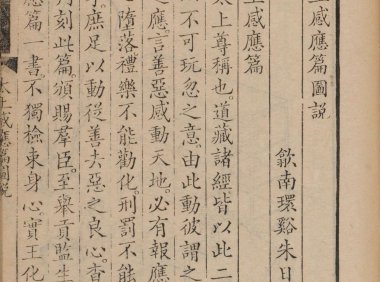 上感應篇圖說
歙南環谿朱日
上感應篇
太上尊稱也。道藏諸經皆以此二
不可玩忽之意。由此動彼謂之
應。言善惡感動天地。必有報應
墮落禮樂不能勸化。刑罰不能
庶足以動從善去惡之良心。查
刻此篇。頒賜羣臣。至舉貢監生
應篇一書。不獨檢束身心。實王化
太上感應篇圖說